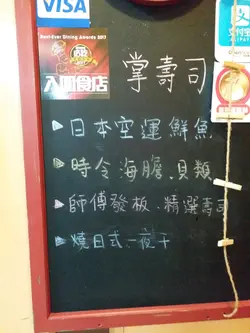 VISA
Best-Ever Dining Awards 2017
入圍食店
掌壽司
日本空運鮮魚
時令海膽.貝類
師傅發板.精選壽司
燒日式一夜干
支付宝